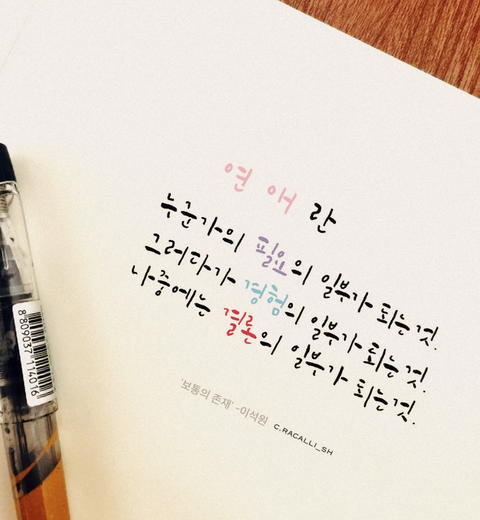 연애란
누군가의 필요의 일부가 되는것.
그러다가 경험의 일부가 되는것.
나중에는 결론의 일부가 되는것.
'보통의 존재' -이석원 C.RACALLI_SH
8809037114016